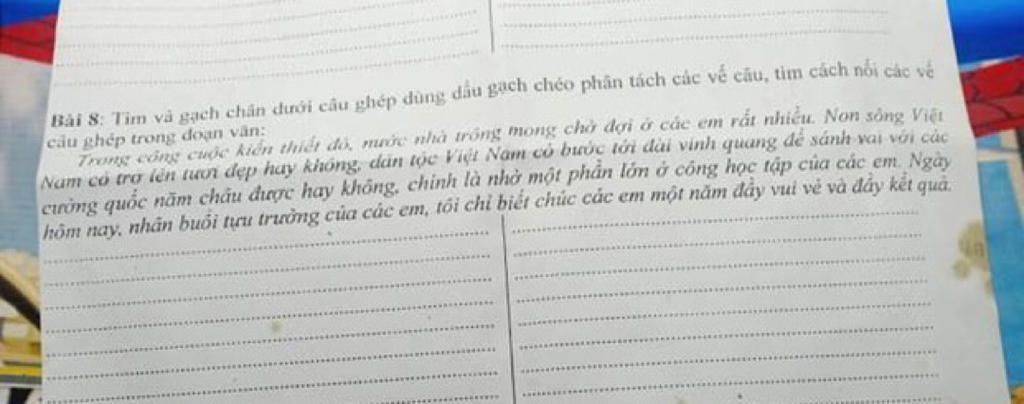 Bài 8: Tìm và gạch chân dưới câu ghép dùng dấu gạch chéo phân tách các vế câu, tìm cách nối các vế
câu ghép trong đoạn văn:
Trong công cuộc kiến thiết đó, nước nhà trông mong chờ đợi ở các em rất nhiều. Non sông Việt
Nam có trở lên tươi đẹp hay không, dân tộc Việt Nam có bước tới đài vinh quang để sánh vai với các
cường quốc năm châu được hay không, chính là nhờ một phần lớn ở công học tập của các em. Ngày
hôm nay, nhân buổi tựu trường của các em, tôi chỉ biết chúc các em một năm đầy vui vẻ và đầy kết quả.